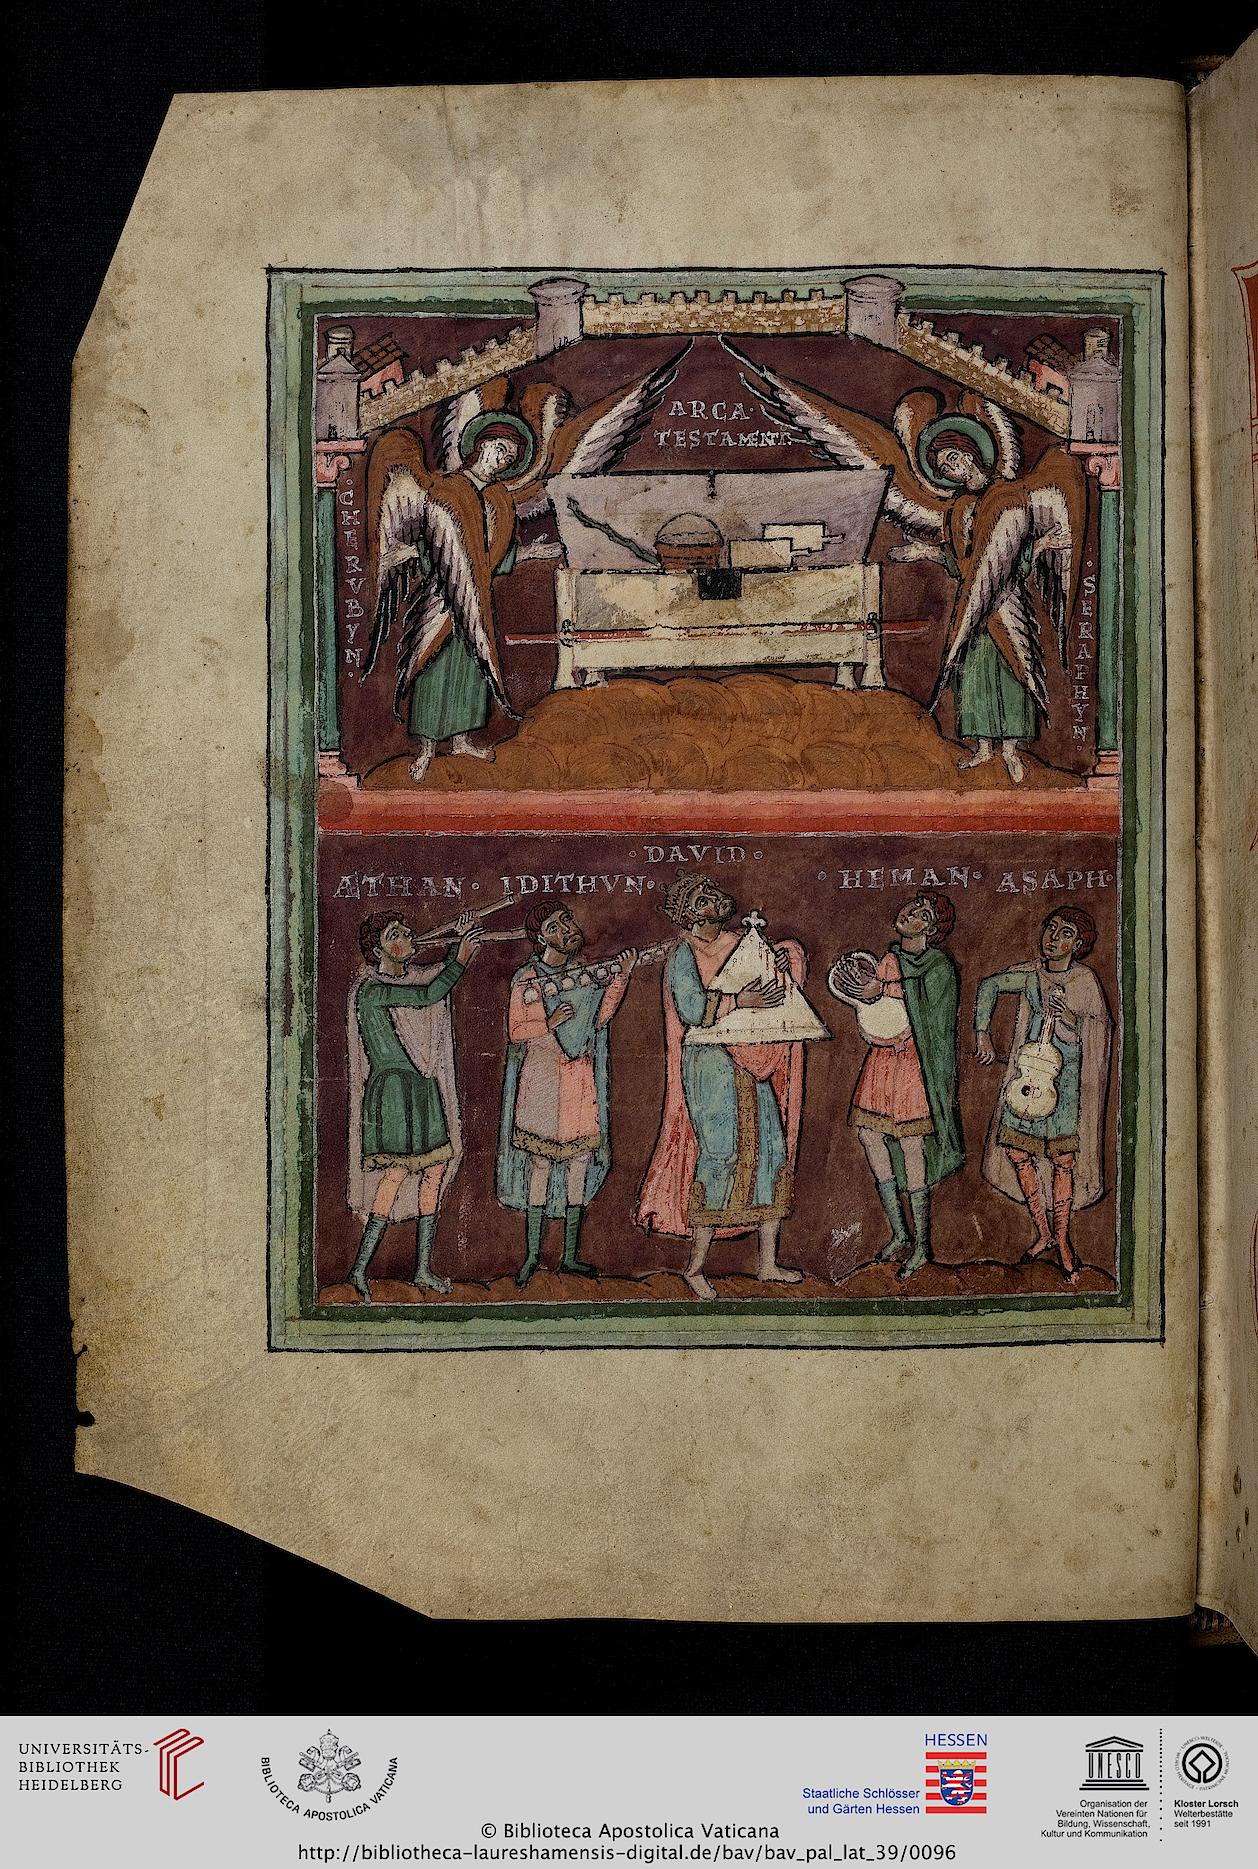 ARCA·
TESTAMENTI
·CHERVBYN·
·SERAPHYN·
◦DAVID◦
ATHAN· IDITHVN◦ ◦HEMAN◦ ASAPH·
UNIVERSITÄTS-
BIBLIOTHEK
HEIDELBERG
BIBLIOTECA APOSTOLICA VATICANA
HESSEN
Staatliche Schlösser
und Gärten Hessen
UNESCO
Organisation der
Vereinten Nationen für
Bildung, Wissenschaft,
Kultur und Kommunikation
Kloster Lorsch
Welterbestätte
seit 1991
© Biblioteca Apostolica Vaticana
http://bibliotheca-laureshamensis-digital.de/bav/bav_pal_lat_39/0096